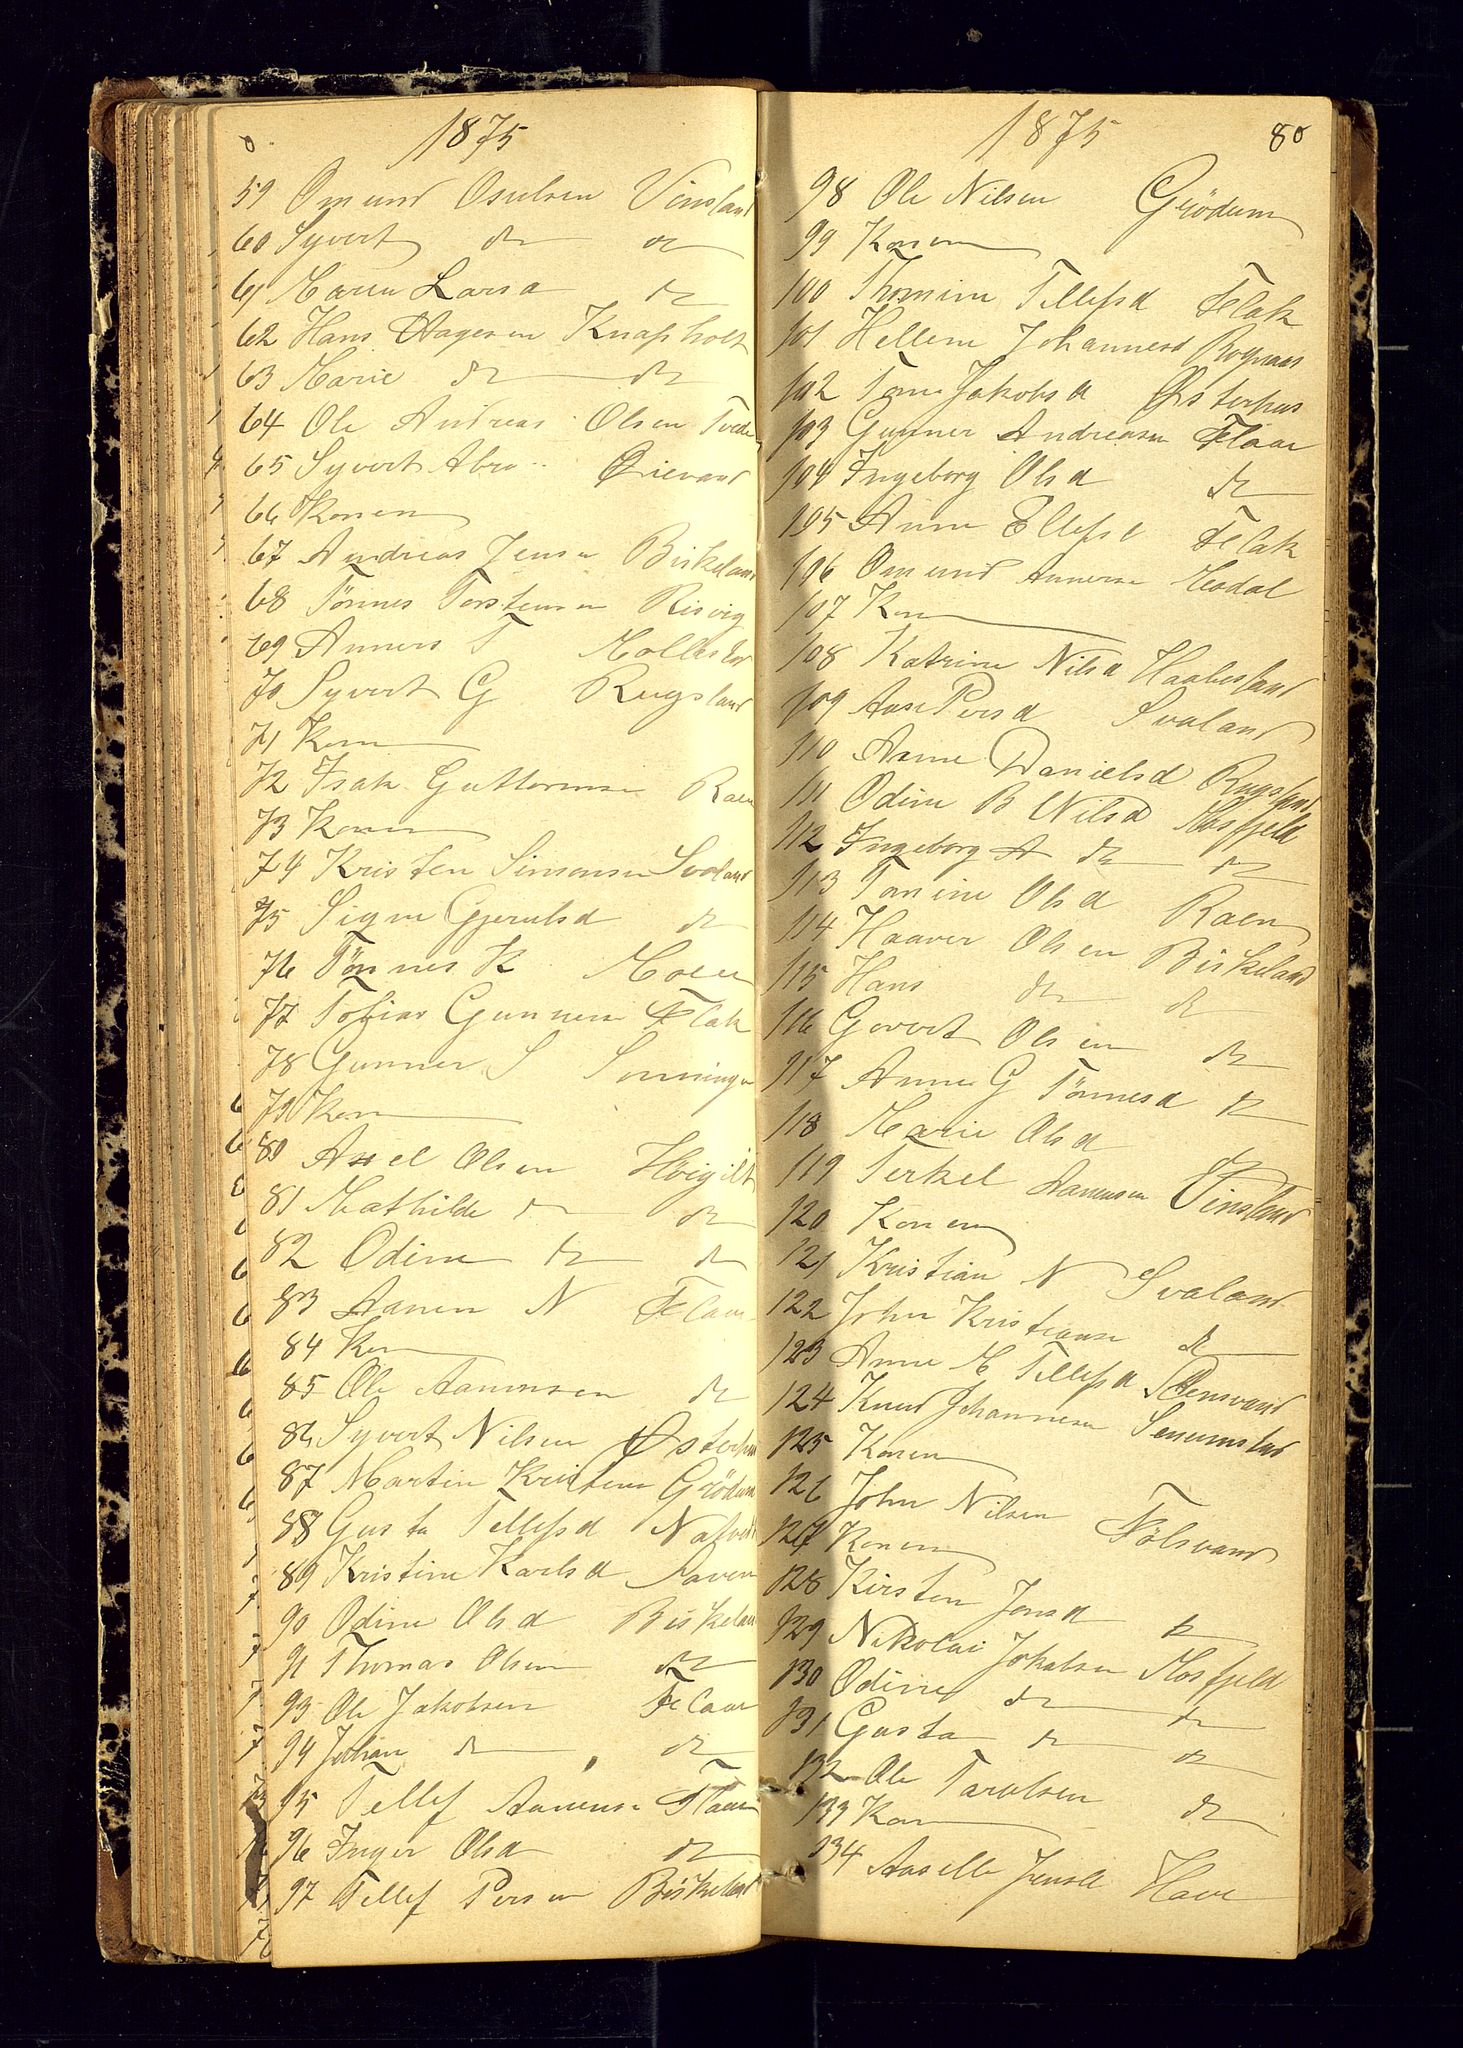 1875
59 Omund Osulsen Vinsland
60 Syvert do do
61 Maren Larsd do
62 Hans Aagesen Knapholt
63 Marie do do
64 Ole Andreas Olsen Tveden
65 Syvert Abra..
66 Konen
67 Andreas Jensen Birkeland
68 Tönnes Torstensen Risvig
69 Anners T
70 Syvert G Rugsland
71 Kone
72 Isak Guttormsen Raen
73 Konen
74 Kristen Simonsen Svaland
75 Signe Gjerulsd do
76 Tönnes K Moen
77 Tobias Gunnersen Flak
78 Gunner S
79 Kone
80 Axel Olsen Høigilt
81 Mathilde do do
82 Odine do do
83 Aanen N Flaa
84 Kon
85 Ole Aanensen do
86 Syvert Nilsen Østerhus
87 Martin Kristens Grödum
88 Gusta Tellefsd
89 Kristine Karlsd
90 Odine Olsd Birkeland
91 Thomas Olsen do
93 Ole Jakobsen Flaa
94 Johan do do
95 Tellef Aanensen Flaa
96 Inger Olsd do
97 Tellef Persen Birkeland
1875 80
98 Ole Nilsen Grödum
99 Konen
100 Thomine Tellefsd Flak
101 Hellene Johannesd
102 Tone Jakobsd Østerhus
103 Gunner Andreasen Flaa
104 Ingeborg Olsd do
105 Anne Ellefsd Flak
106 Omund Annersen
107 Kon
108 Katrine Nilsd Haabesland
109 Aase Persd Svaland
110 Anne Danielsd Rugsland
111 Odine B Nilsd Mosfjeld
112 Ingeborg A do do
113 Tomine Olsd Raen
114 Haaver Olsen Birkeland
115 Hans do do
116 Govert Olsen do
117 Anne G Tönnesd do
118 Marie Olsd do
119 Terkel Aanensen Vinsland
120 Konen
121 Kristian N Svaland
122 John Kristiansen do
123 Anne M Tellefsd
124 Knud Johannesen Senumstad
125 Konen
126 John Nilsen Fölsvand
127 Konen
128 Kirsten Jonsd do
129 Nikolai Jokabsen Mosfjeld
130 Odine do do
131 Gusta do do
132 Ole Tarulsen do
133 Kon
134 Aaselle Jensd